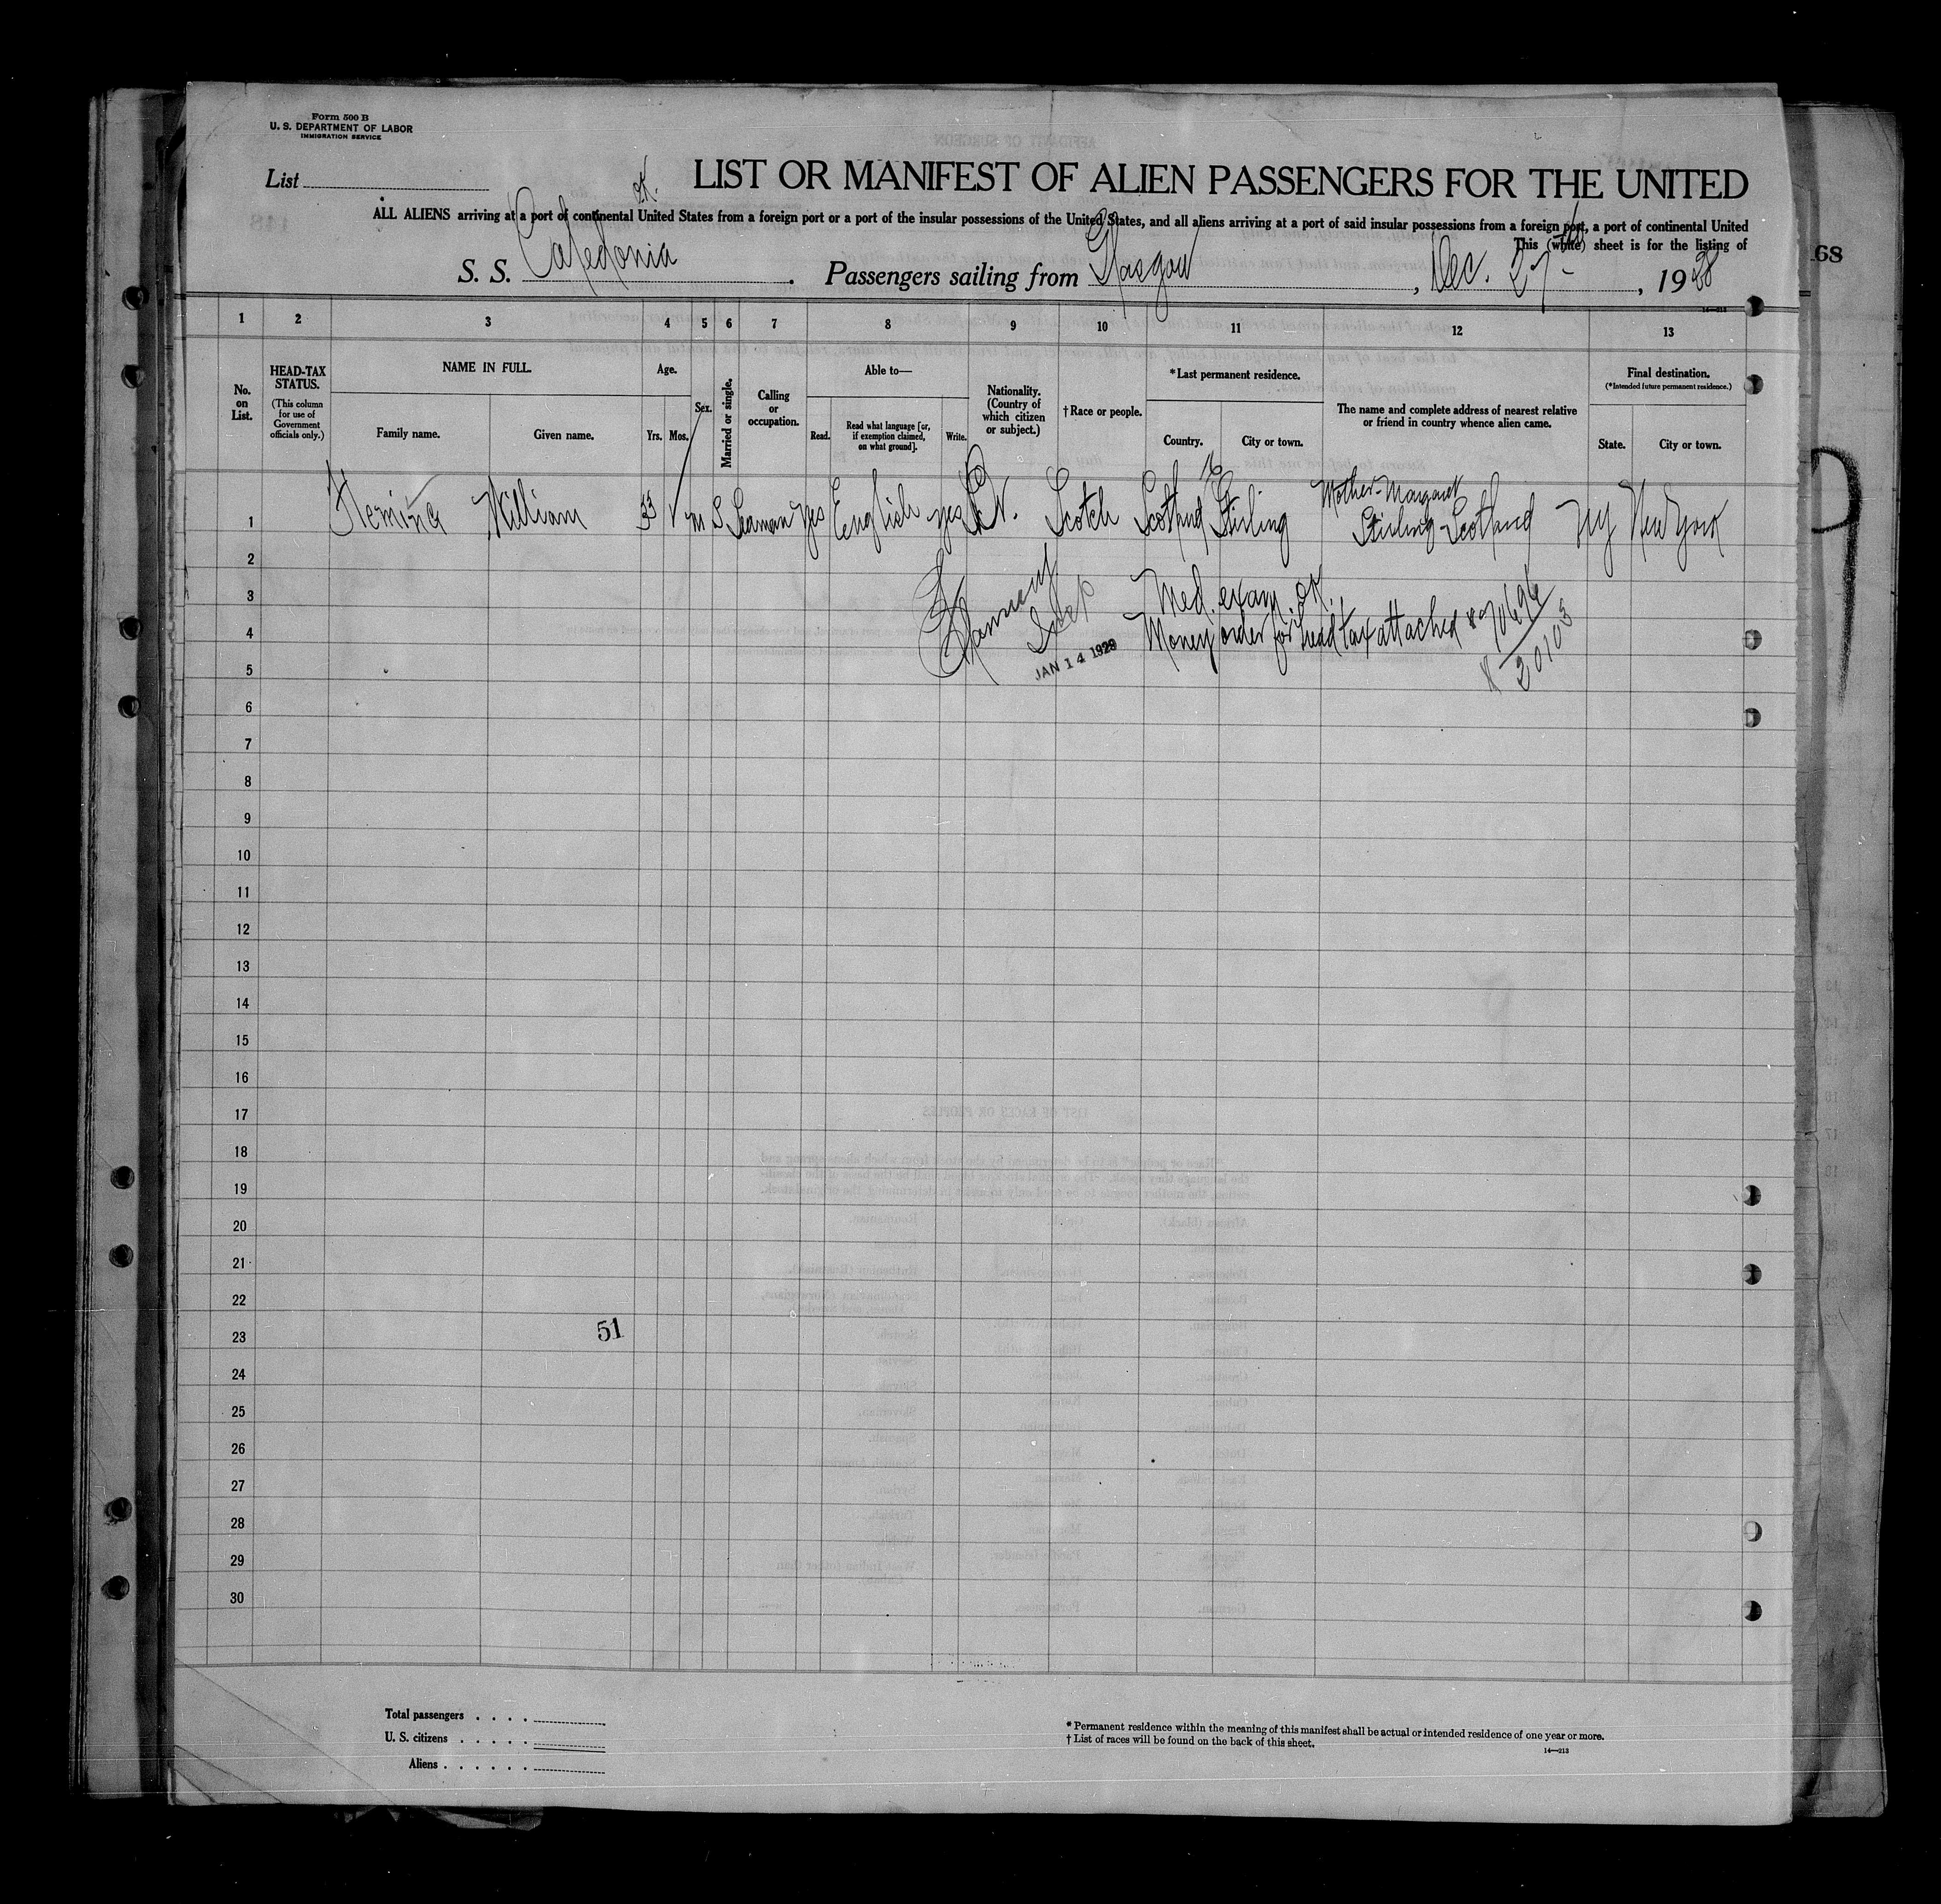 Form 500 B
U. S. DEPARTMENT OF LABOR
IMMIGRATION SERVICE
List
LIST OR MANIFEST OF ALIEN PASSENGERS FOR THE UNITED
ALL ALIENS arriving at a port of continental United States from a foreign port or a port of the insular possessions of the United States, and all aliens arriving at a port of said insular possessions from a foreign port, a port of continental United
This (white) sheet is for the listing of
S. S. Caledonia . Passengers sailing from Glasgow , Dec. 27 , 1928
68
14—213
1 2 3 4 5 6 7 8 9 10 11 12 13
No. on List.
HEAD-TAX STATUS.
(This column for use of Government officials only.)
NAME IN FULL.
Family name. Given name.
Age.
Yrs. Mos.
Sex.
Married or single.
Calling or occupation.
Able to—
Read. Read what language [or, if exemption claimed, on what ground]. Write.
Nationality. (Country of which citizen or subject.)
† Race or people.
* Last permanent residence.
Country. City or town.
The name and complete address of nearest relative or friend in country whence alien came.
Final destination.
(* Intended future permanent residence.)
State. City or town.
1 Fleming William 33 m S Seaman yes English yes Scotch Scotland Stirling Mother-Margaret Stirling Scotland NY New York
2
3 Med. exam. OK.
4 Money order for head tax attached
JAN 14 1929
5
6
7
8
9
10
11
12
13
14
15
16
17
18
19
20
21
22
23 51
24
25
26
27
28
29
30
Total passengers . . . .
U. S. citizens . . . . .
Aliens . . . . . .
* Permanent residence within the meaning of this manifest shall be actual or intended residence of one year or more.
† List of races will be found on the back of this sheet.
14—213